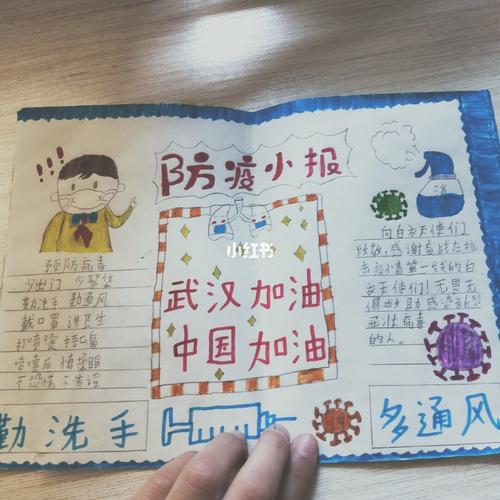 防疫小报
小红书
武汉加油
中国加油
预防病毒
少出门 少聚集
勤洗手 勤通风
戴口罩 讲卫生
打喷嚏 捂口鼻
喷嚏后 慎揉眼
不恐慌 不传谣
消
向白衣天使们
致敬,感谢奋战在抗
击疫情第一线的白
衣天使们!无畏去
救助感染新型
冠状病毒
的人。
勤洗手
多通风